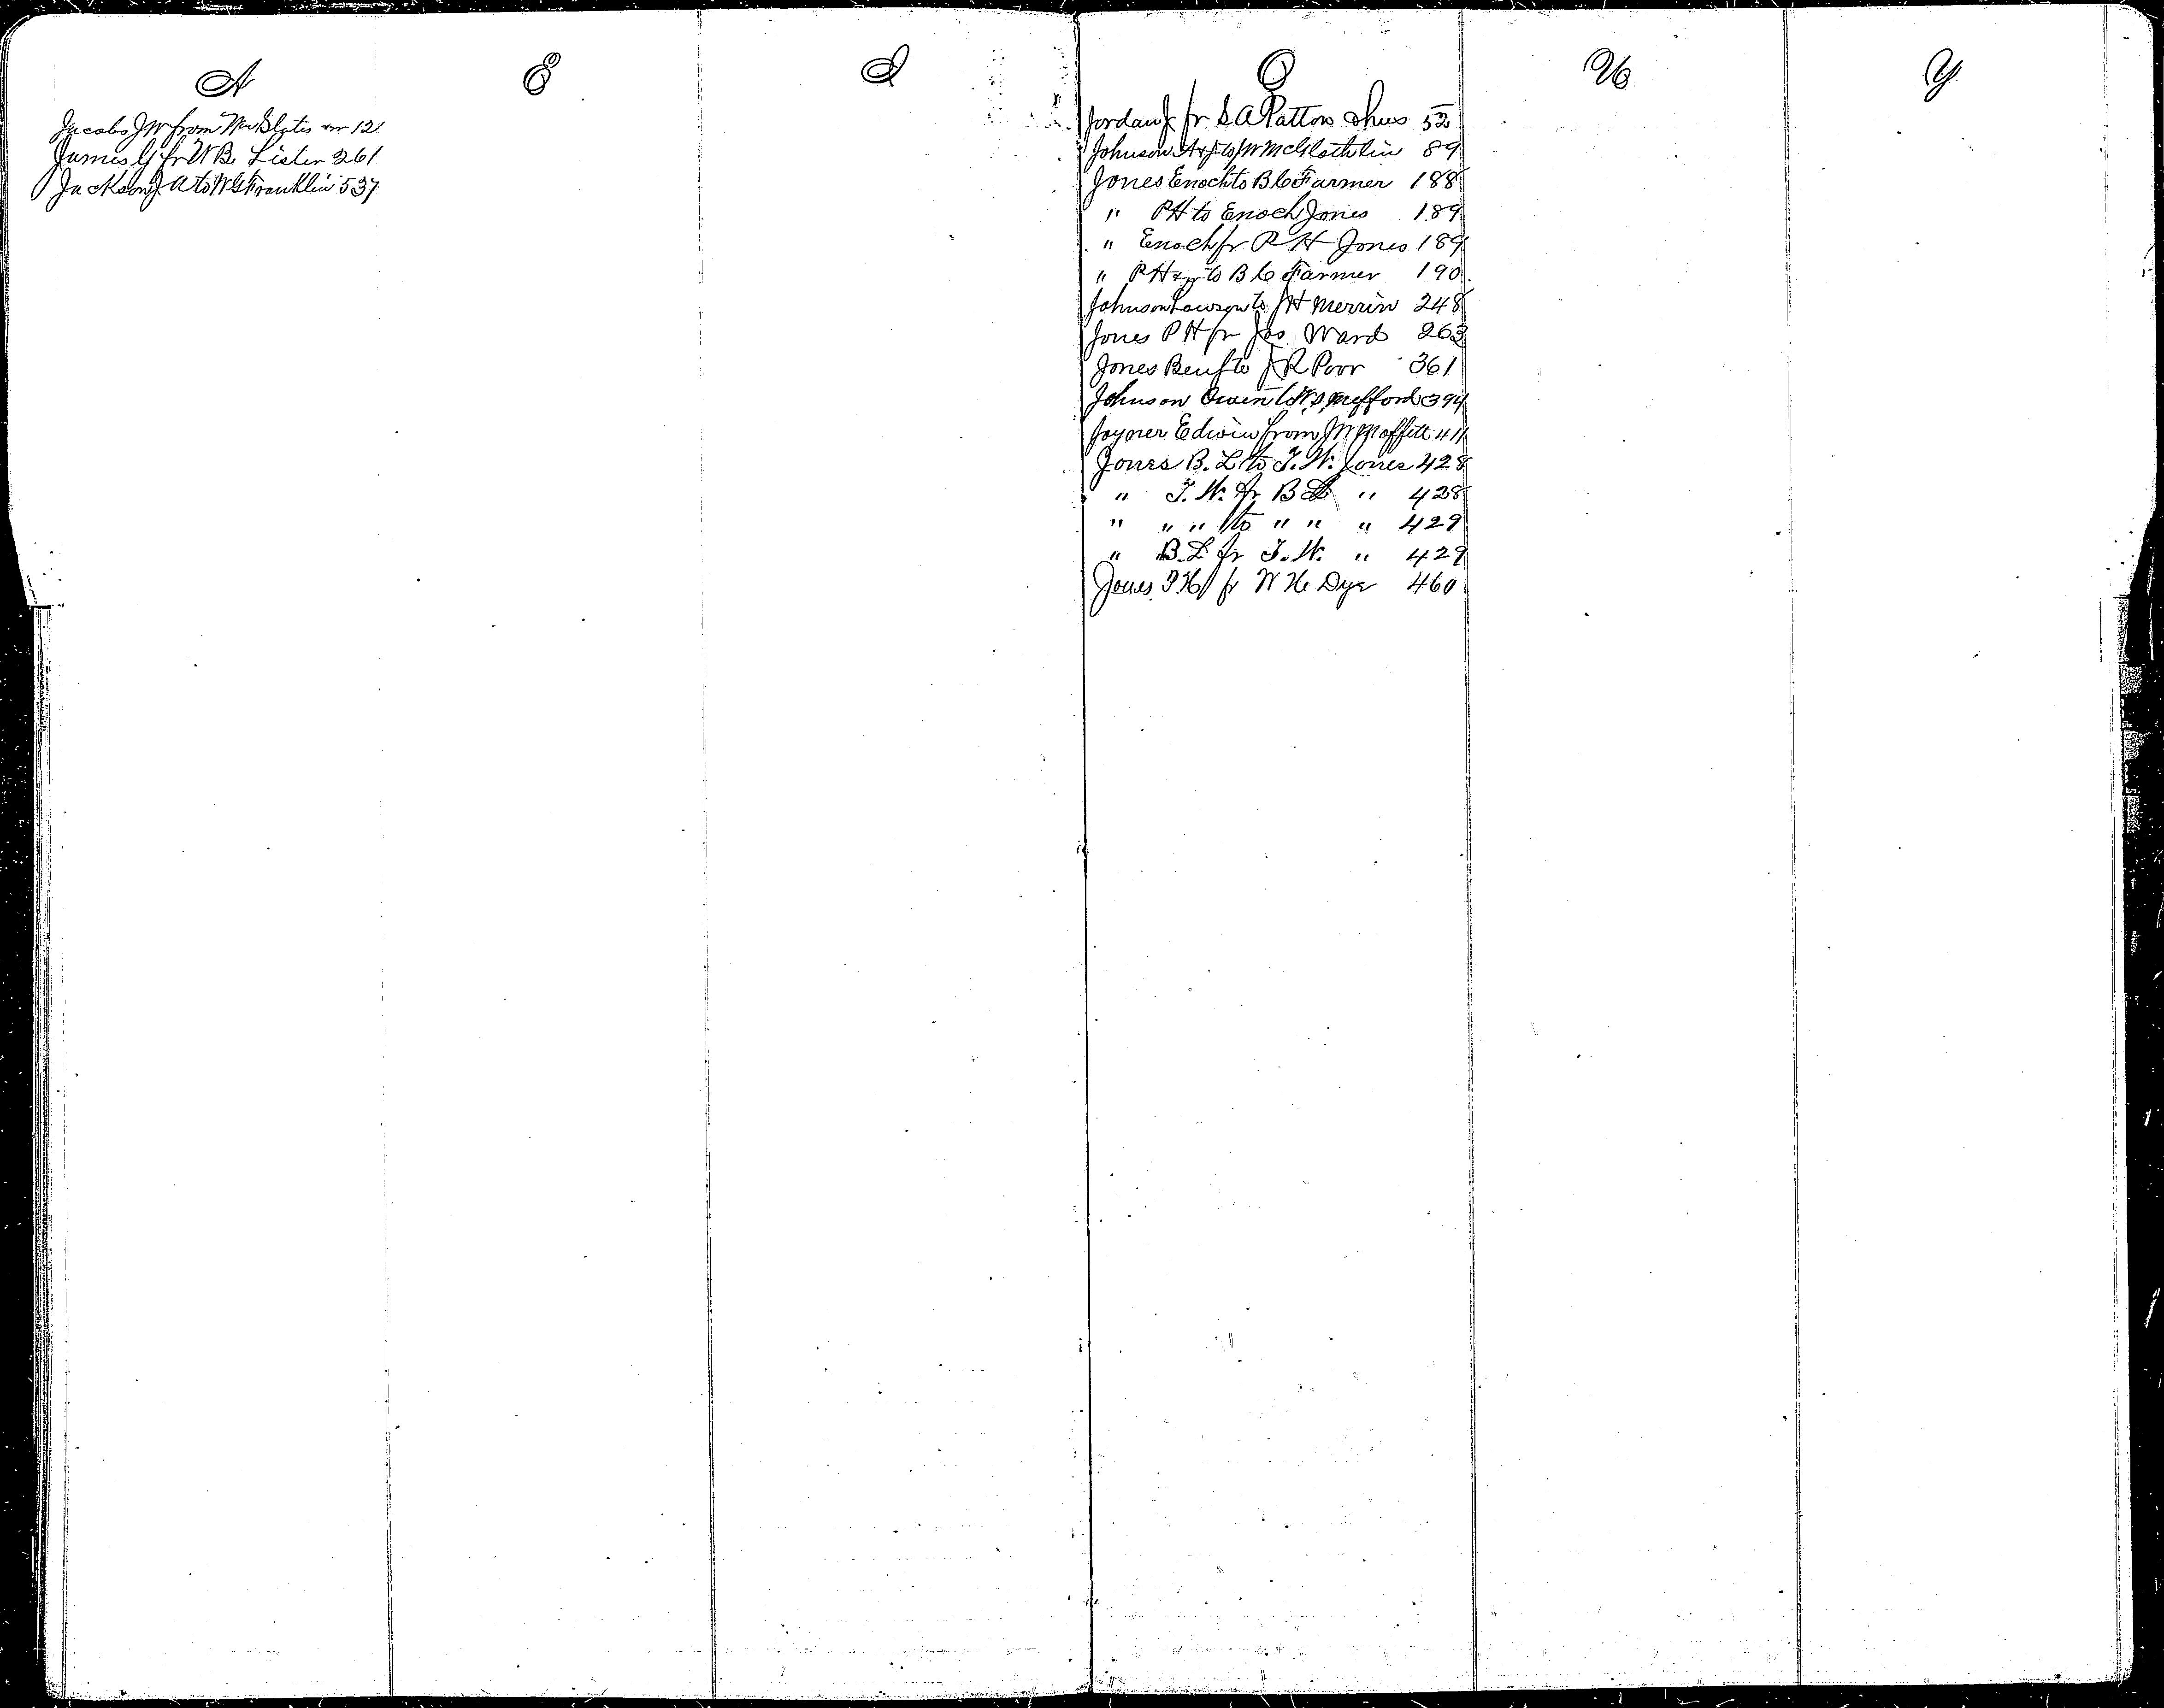 A
Jacobs J W from Wm Slates 121
James G fr W B Lister 261
Jackson J A to W G Franklin 537
E
I
O
Jordan J fr S A Patton 52
Johnson to J W McGlothlin 89
Jones Enoch to B C Farmer 188
" P H to Enoch Jones 189
" Enoch fr P H Jones 189
" P H to B C Farmer 190
Johnson Lawson to J H Merrin 248
Jones P H fr Jas Ward 263
Jones Benj to J R Poor 361
Johnson Owen to Mefford 394
Joyner Edwin from J W Moffitt 411
Jones B. L to T. W. Jones 428
" T. W. fr B L " 428
" " " to " " " 429
" B. L fr T. W. " 429
Jones T H fr W H Dye 460
U
Y